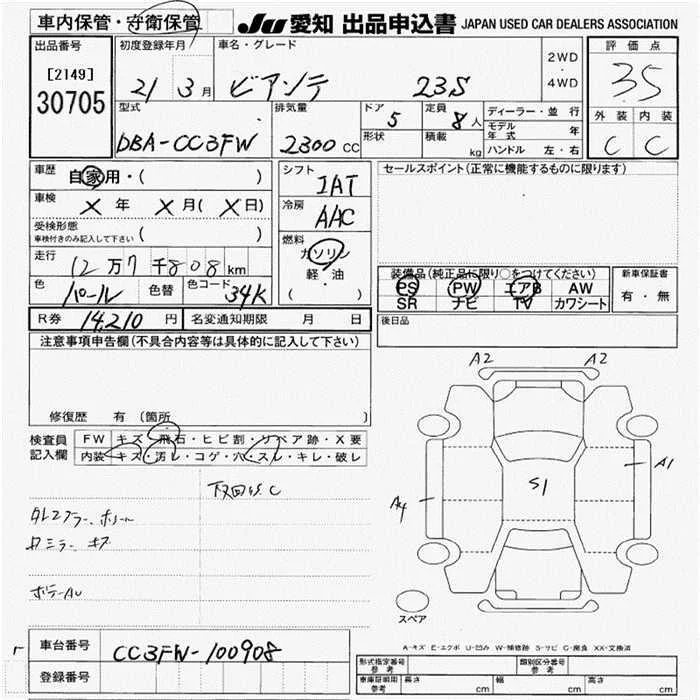 車内保管・守衛保管 JU 愛知 出品申込書 JAPAN USED CAR DEALERS ASSOCIATION
出品番号 初度登録年月 車名・グレード 2WD ・ 4WD 評価点
[2149] 21 3月 ビアンテ 23S 35
30705 型式 排気量 ドア 5 定員 8人 ディーラー・並行 外装 内装
DBA-CC3FW 2300 CC 形状 積載 kg モデル年式 年 C C
ハンドル 左・右
車歴 自家用・( ) シフト IAT セールスポイント(正常に機能するものに限ります)
車検 X 年 X 月( X 日) 冷房 AAC
受検形態 車検付きのみ記入して下さい ( ) 燃料 ガソリン
走行 12万7千808km 軽・油 装備品(純正品に限り○をつけてください) 新車保証書
色 パール 色替 色コード 34K ( ) PS PW エアB AW 有・無
SR ナビ TV カワシート
R券 14,210 円 名変通知期限 月 日 後日品
注意事項申告欄(不具合内容等は具体的に記入して下さい)
A2 A2
修復歴 有 (箇所 )
検査員 FW キズ・飛石・ヒビ割・リペア跡・X要
記入欄 内装 キズ・汚レ・コゲ・穴・スレ・キレ・破レ
A1
S1
A4
キズ
ボデーAU
スペア
車台番号 CC3FW-100908
A-キズ E-エクボ U-凹み W-補修跡 S-サビ C-腐食 XX-交換済
登録番号 形式指定番号 参考 類別区分番号 参考
車庫証明用 参考 長さ cm 幅 cm 高さ cm